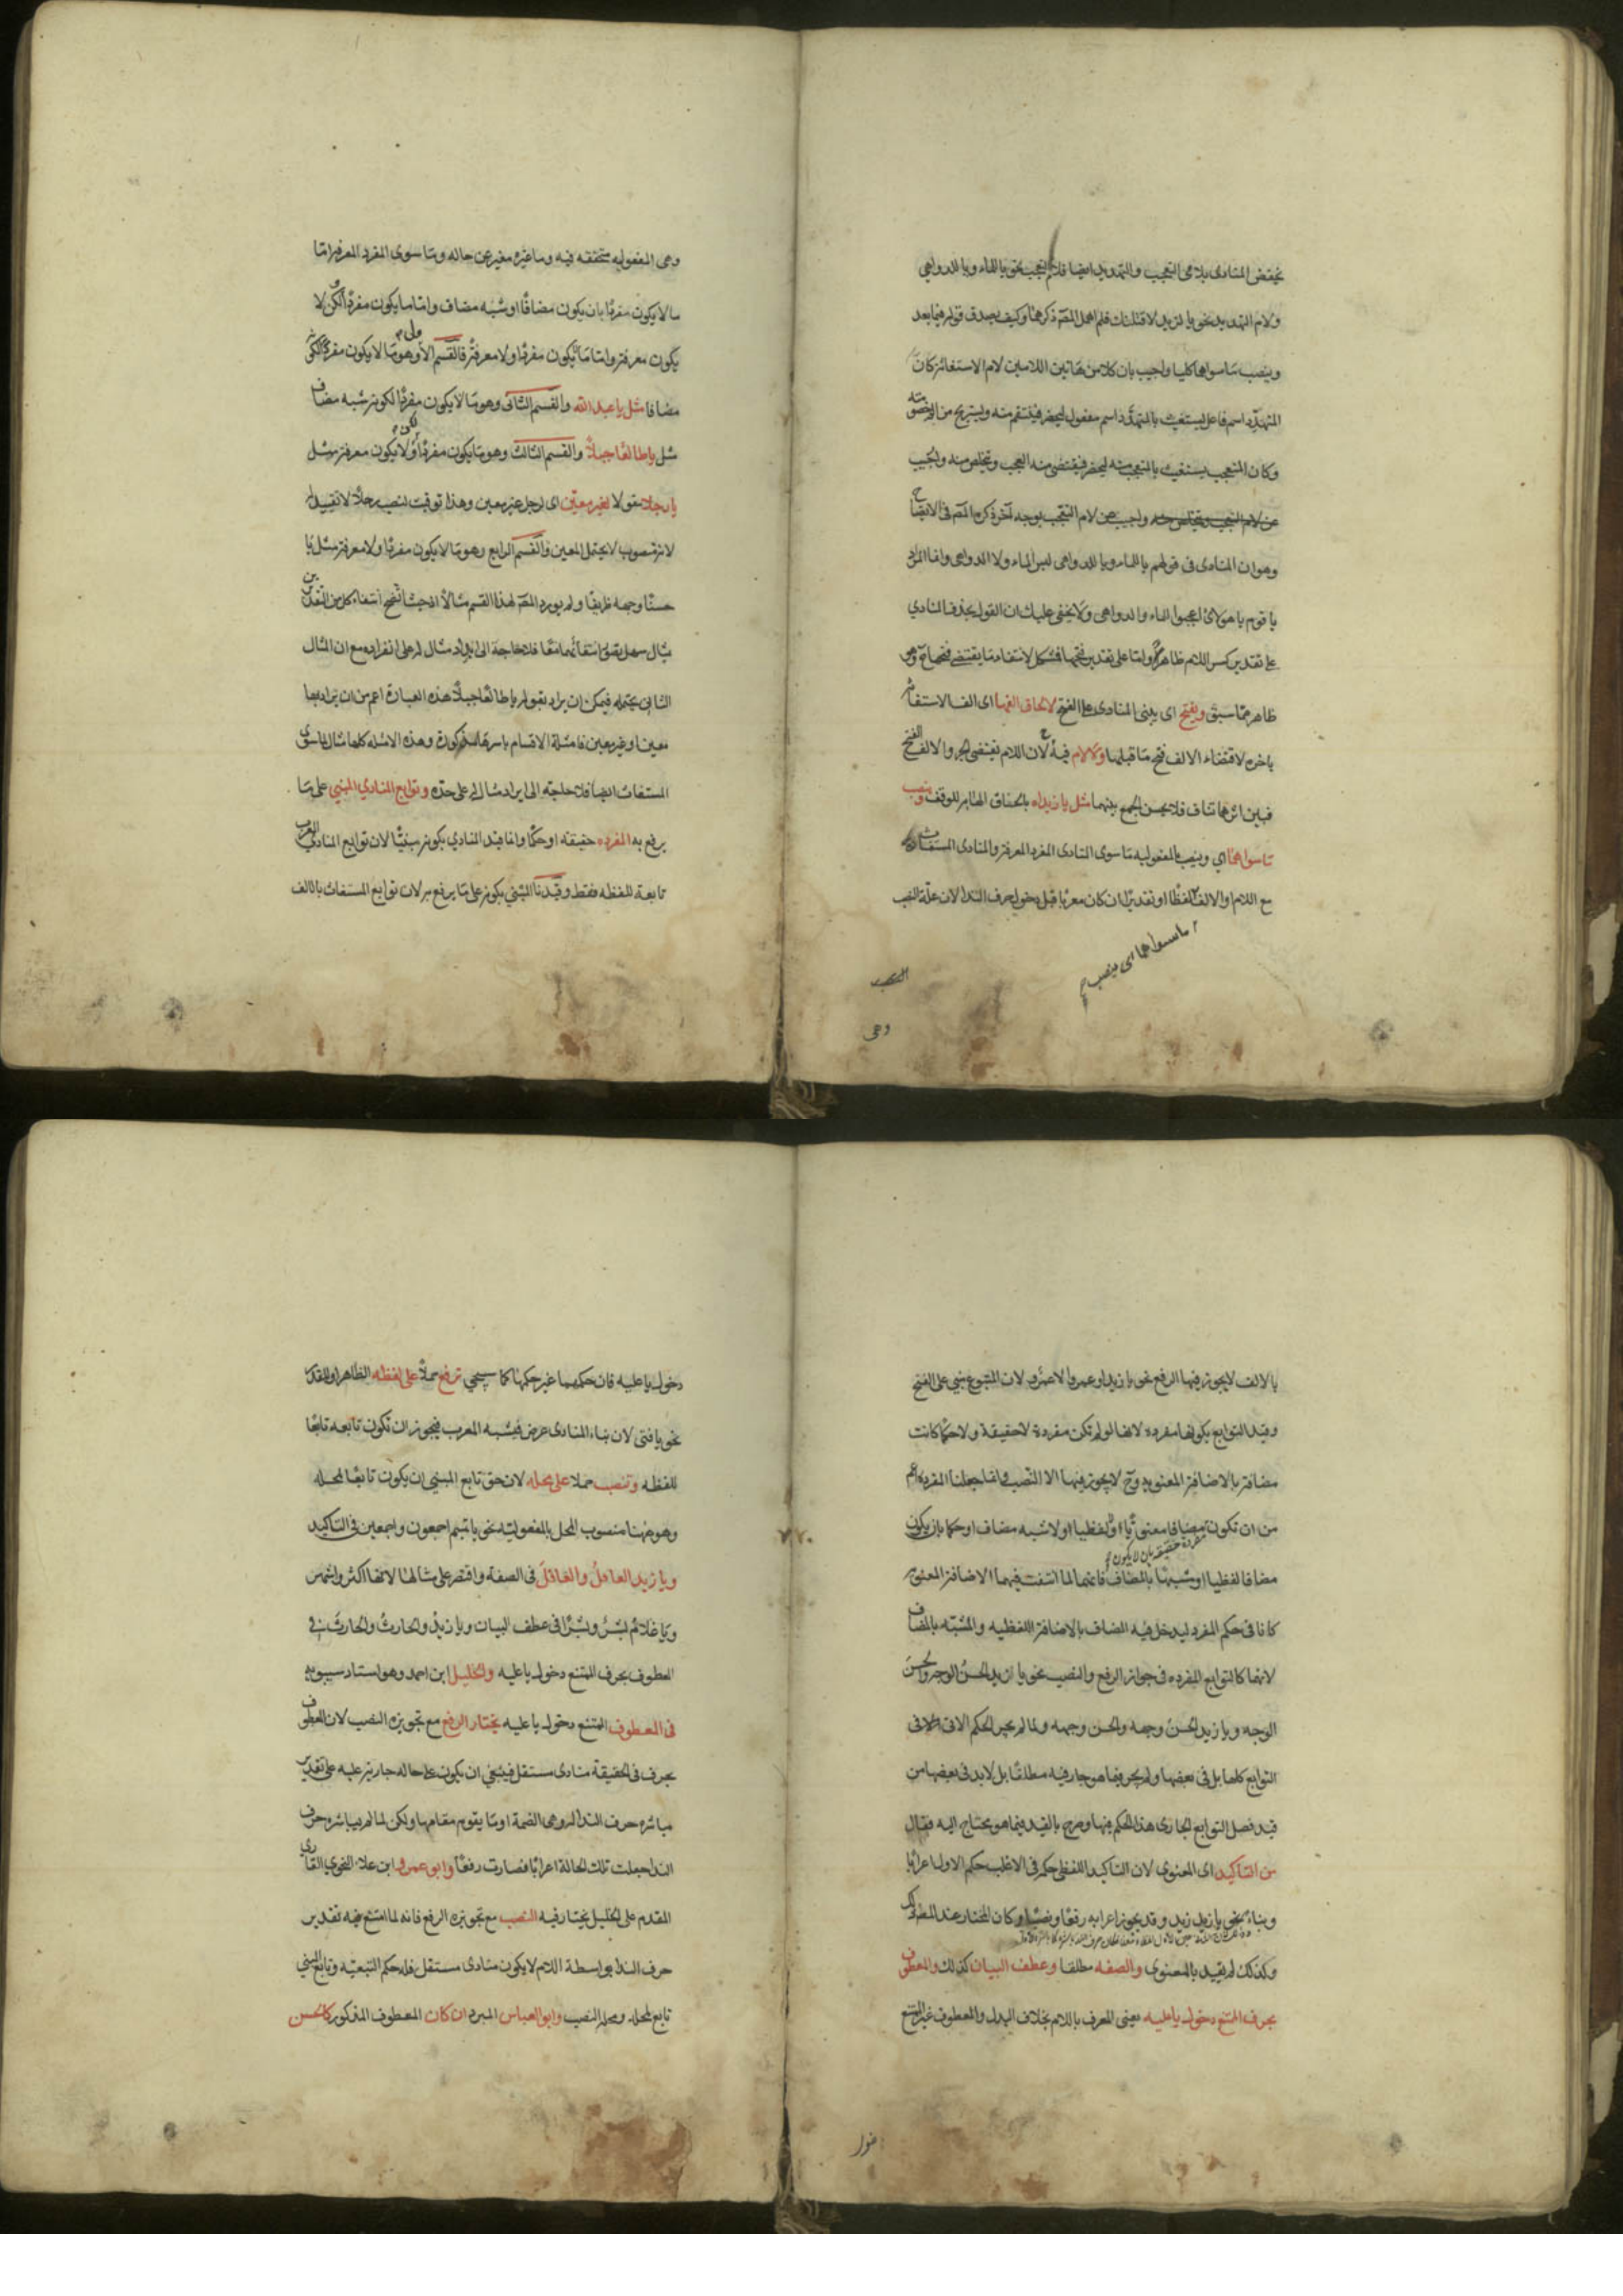 يخفض المنادى بلامى التعجب والتهديد ايضا فلام التعجب نحو يا للماء ويا للدواهى
ولام التهديد نحو يا لزيد لاقتلنك فلم اهمل المصّ ذكرهما وكيف يصدق قوله فيما بعد
وينصب ما سواهما كليا واجيب بان كلا من هاتين اللامين لام الاستغاثة كانّ
المتهدّد اسم فاعل يستغيث بالمتهدَّد اسم مفعول ليحضر فينتقم منه ويستريح من الم خصومته
وكان المتعجب يستغيث بالمتعجب منه ليحضر فيقتضى منه العجب ويتخلص منه واجيب
عن لام التعجب بوجه آخر ذكره المصّ فى الايضاح
وهو ان المنادى فى قولهم يا للماء ويا للدواهى ليس الماء ولا الدواهى وانما المراد
يا قوم يا هولاء اعجبوا للماء وللدواهى ولا يخفى عليك ان القول بحذف المنادي
على تقدير كسر اللام ظاهر واما على تقدير فتحها فمشكل لانتفاء ما يقتضى فتحها ح وهو
ظاهر مما سبق ويفتح اى يبنى المنادى على الفتح لالحاق الفها اى الف الاستغاثة
باخره لاقتضاء الالف فتح ما قبلها ولا لام فيه ح لان اللام تقتضى الجر والالف الفتح
فبين اثرهما تناف فلا يحسن الجمع بينهما مثل يا زيداه بالحاق الهاء به للوقف وينصب
ما سواهما اي وينصب بالمفعوليه ما سوى المنادى المفرد المعرفة والمنادى المستغاث
مع اللام او الالف لفظا او تقديرا ان كان معربا قبل دخول حرف الندا لان علة النصب
ما سواهما اى ينصب
النصب
وهى
وهى المفعوليه متحققه فيه وما غيّره مغير عن حاله وما سوى المفرد المعرفة امّا
ما لا يكون مفردًا بان يكون مضافًا او شبه مضاف واما ما يكون مفردًا لكن لا
يكون معرفة واما ما لا يكون مفردًا ولا معرفة فالقسم الاول وهو ما لا يكون مفردًا لكونه
مضافا مثل يا عبد الله والقسم الثانى وهو ما لا يكون مفردًا لكونه شبه مضاف
مثل يا طالعًا جبلاً والقسم الثالث وهو ما يكون مفردًا ولا يكون معرفة مثل
يا رجلا مقولا لغير معيّن اى لرجل غير معين وهذا توقيت لنصب رجلاً لا تقييد له
لانه منصوب لا يحتمل المعين والقسم الرابع وهو ما لا يكون مفردًا ولا معرفة مثل يا
حسنًا وجهه ظريفًا ولم يورد المصّ لهذا القسم مثالاً اذ حيث اتّضح انتفاء كل من القيدين
بمثال سهل تصور انتفائهما معًا فلا حاجة الى ايراد مثال له على انفراده مع ان المثال
الثانى يحتمله فيمكن ان يراد بقوله يا طالعًا جبلاً هذه العبارة اعم من ان يراد بها
معين او غير معين فامثلة الاقسام باسرها مذكورة وهذه الامثله كلها مثال لما سوى
المستغاث ايضا فلا حاجة الى ايراد مثال له على حده وتوابع المنادي المبني على ما
يرفع به المفرده حقيقه او حكمًا وانما قيد المنادي بكونه مبنيًّا لان توابع المنادي المعرب
تابعة للفظه فقط وقيّدنا المبني بكونه على ما يرفع به لان توابع المستغاث بالالف
بالالف لا يجوز فيها الرفع نحو يا زيدا وعمرا لا عمرٌو لان المتبوع مبني على الفتح
وقيد التوابع بكونها مفرده لانها لو لم تكن مفردة لا حقيقة ولا حكمًا كانت
مضافة بالاضافة المعنويه وح لا يجوز فيها الا النصب وانما جعلنا المفرده اعم
من ان تكون مفردة حقيقة بان لا يكون مضافا معنويًّا او لفظيا او لا شبه مضاف او حكما بان يكون
مضافا لفظيا او شبيهًا بالمضاف فانهما لما انتفت فيهما الاضافة المعنوية
كانا فى حكم المفرد ليدخل فيه المضاف بالاضافة اللفظيه والمشبّه بالمضاف
لانهما كالتوابع المفرده فى جواز الرفع والنصب نحو يا زيد الحسنُ الوجه والحسنَ
الوجه ويا زيد الحسنُ وجهه والحسن وجهه ولما لم يجر الحكم الاتى فى
التوابع كلها بل فى بعضها ولم يجر فيما هو جار فيه مطلقًا بل لا بد فى بعضها من
قيد فصل التوابع الجارى هذا الحكم فيها وصرح بالقيد فيما هو محتاج اليه فقال
من التاكيد اى المعنوى لان التاكيد اللفظي حكمه فى الاغلب حكم الاول اعرابًا
وبناءً نحو يا زيد زيد وقد يجوز اعرابه رفعًا ونصبًا وكان المختار عند المصّ ذلك
وكذلك لم يقيد بالمعنوى والصفه مطلقا وعطف البيان كذلك والمعطوف
بحرف الممتنع دخول يا عليه يعنى المعرف باللام بخلاف البدل والمعطوف غير الممتنع
دخول يا عليه فان حكمهما غير حكمها كما سيجى ترفع حملاً على لفظه الظاهر او المقدر
نحو يا فتى لان بناء المنادى عرض فيشبه المعرب فيجوز ان تكون تابعه تابعًا
للفظه وتنصب حملا على محله لان حق تابع المبنى ان يكون تابعًا لمحله
وهو ههنا منصوب المحل بالمفعوليّه نحو يا تيم اجمعون واجمعين فى التاكيد
ويا زيد العاقلُ والعاقلَ فى الصفة واقتصر على مثالها لانها اكثر واشهر
ويا غلام بشرٌ وبشرًا فى عطف البيان ويا زيدُ والحارثُ والحارثَ فى
المعطوف بحرف الممتنع دخول يا عليه والخليل ابن احمد وهو استاد سيبويه
فى المعطوف الممتنع دخول يا عليه يختار الرفع مع تجويزه النصب لان المعطوف
بحرف فى الحقيقة منادى مستقل فينبغي ان يكون على حاله جارية عليه على تقدير
مباشرة حرف الندا له وهى الضمة او ما يقوم مقامها ولكن لما لم يباشره حرف
الندا جعلت تلك الحالة اعرابًا فصارت رفعًا وابو عمرو ابن علا النحوي القارى
المقدم على الخليل يختار فيه النصب مع تجويزه الرفع فانه لما امتنع فيه تقدير
حرف الندا بواسطة اللام لا يكون منادى مستقل فله حكم التبعيّه وتابع المبني
تابع لمحله ومحله النصب وابو العباس المبرد ان كان المعطوف المذكور كالحسن